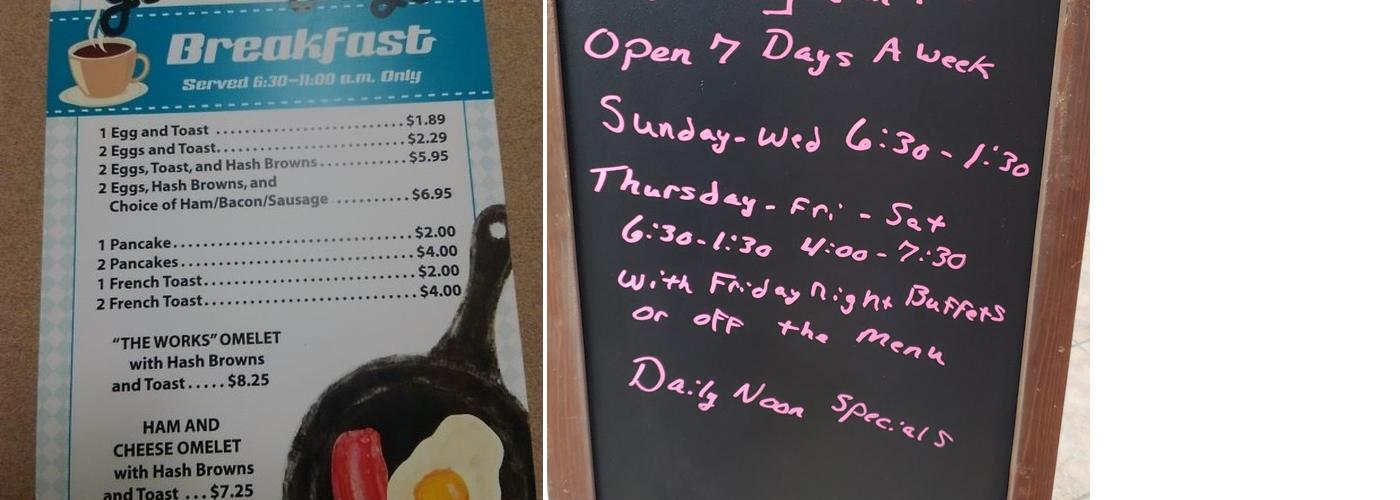 Breakfast
Served 6:30-11:00 a.m. Only
1 Egg and Toast ........................... $1.89
2 Eggs and Toast........................... $2.29
2 Eggs, Toast, and Hash Browns............. $5.95
2 Eggs, Hash Browns, and
Choice of Ham/Bacon/Sausage ........... $6.95
1 Pancake................................. $2.00
2 Pancakes................................ $4.00
1 French Toast............................ $2.00
2 French Toast............................ $4.00
"THE WORKS" OMELET
with Hash Browns
and Toast ..... $8.25
HAM AND
CHEESE OMELET
with Hash Browns
and Toast ... $7.25
Open 7 Days A week
Sunday-Wed 6:30-1:30
Thursday-Fri-Sat
6:30-1:30 4:00-7:30
with Friday Night Buffets
or off the Menu
Daily Noon Specials